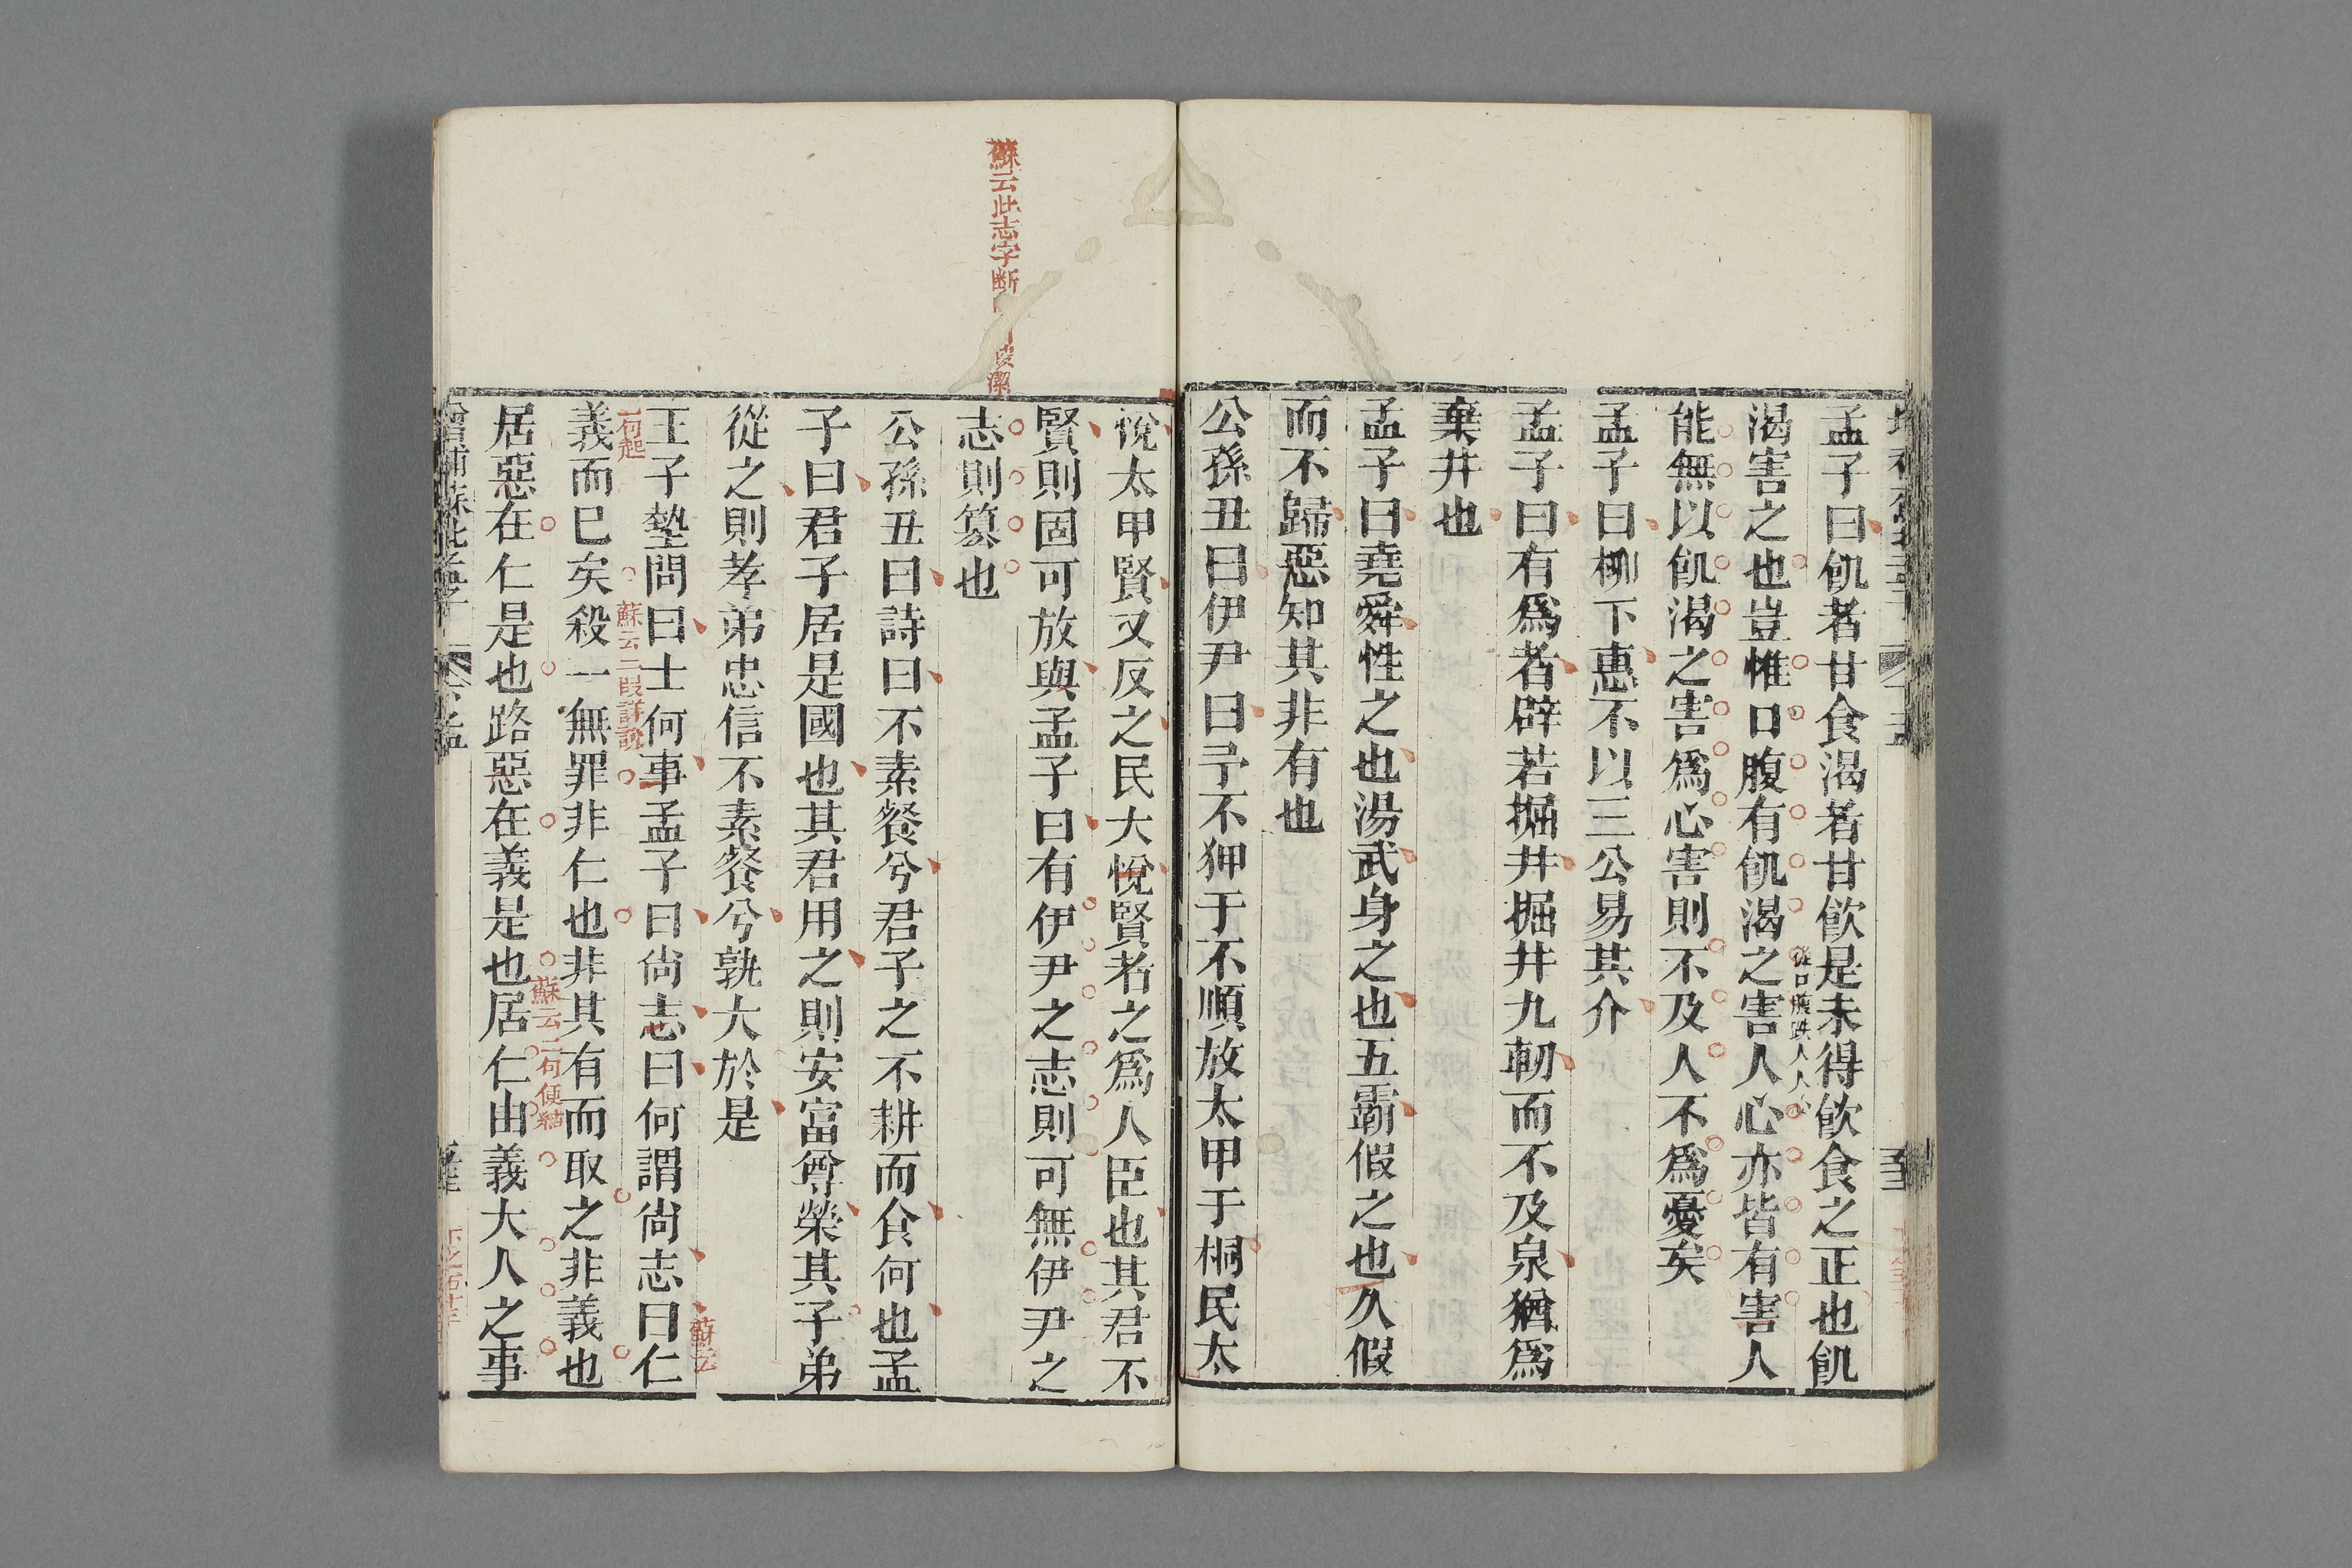 孟子曰飢者甘食渴者甘飮是未得飮食之正也飢
渴害之也豈惟口腹有飢渴之害人心亦皆有害人
從口腹跌人人心
能無以飢渴之害爲心害則不及人不爲憂矣
孟子曰柳下惠不以三公易其介
孟子曰有爲者辟若掘井掘井九軔而不及泉猶爲
棄井也
孟子曰堯舜性之也湯武身之也五霸假之也久假
而不歸惡知其非有也
公孫丑曰伊尹曰予不狎于不順放太甲于桐民大
蘇云此志字斷
潔
悅太甲賢又反之民大悅賢者之爲人臣也其君不
賢則固可放與孟子曰有伊尹之志則可無伊尹之
志則簒也
公孫丑曰詩曰不素餐兮君子之不耕而食何也孟
子曰君子居是國也其君用之則安富尊榮其子弟
從之則孝弟忠信不素餐兮孰大於是
蘇云
王子墊問曰士何事孟子曰尙志曰何謂尙志曰仁
一句起
蘇云二段詳說
義而已矣殺一無罪非仁也非其有而取之非義也
蘇云二句便結
居惡在仁是也路惡在義是也居仁由義大人之事
增補蘇批孟子